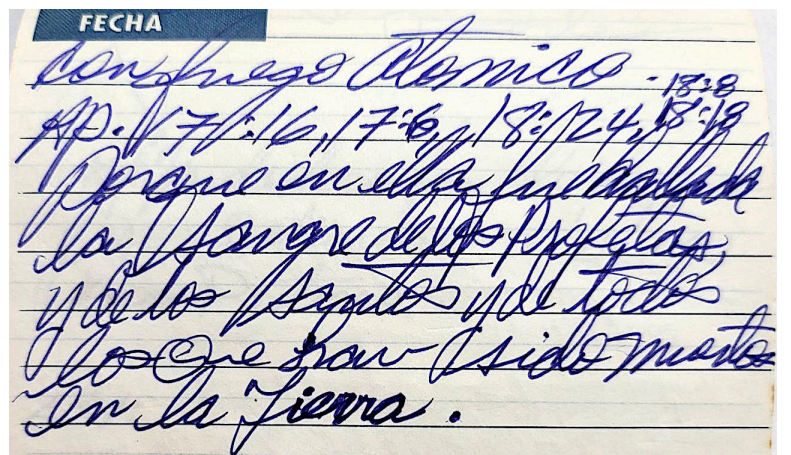 FECHA
con fuego Atomico - 18:8
Ap. 17:16, 17:6, 18:24, 18:18
Porque en ella fue hallada
la Sangre de los Profetas,
y de los Santos y de todos
los que han sido muertos
en la Tierra.